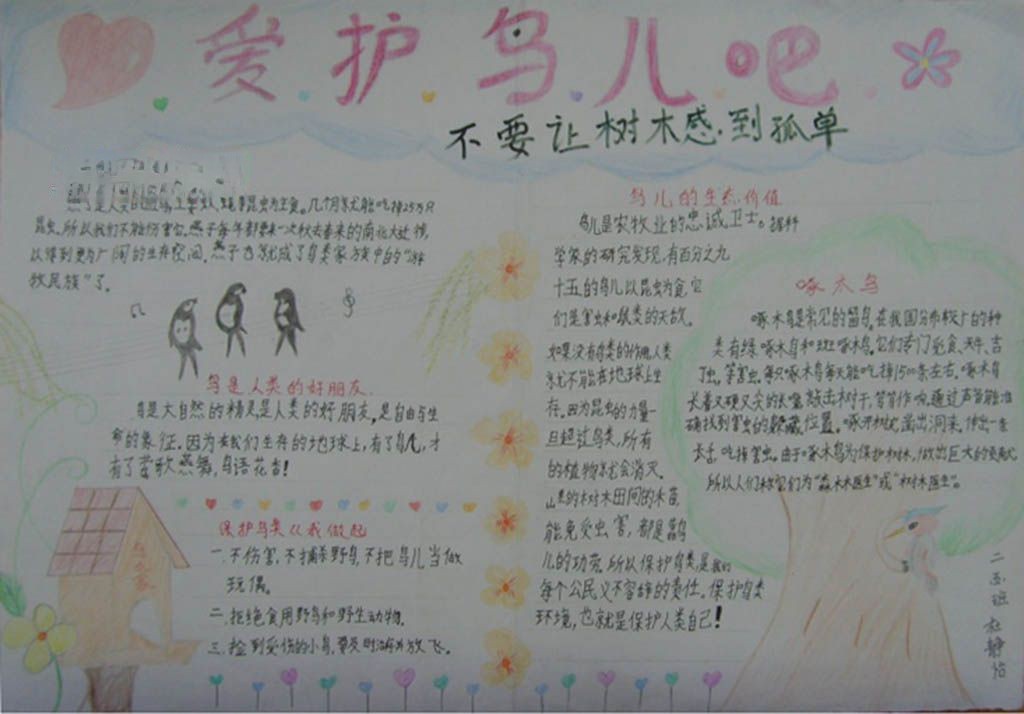 爱护鸟儿吧
不要让树木感到孤单
是人类的 主要 昆虫为主食。几个月就能吃掉25万只
昆虫。所以我们不能伤害它。燕子每年都要来一次秋去春来的南北大迁徙,
以得到更为广阔的生存空间。燕子也就成了鸟类家族中的“游
牧民族”了。
鸟是人类的好朋友
鸟是大自然的精灵是人类的好朋友,是自由与生
命的象征。因为在我们生存的地球上,有了鸟儿,才
有了莺歌燕舞,鸟语花香!
保护鸟类从我做起
一.不伤害,不捕杀野鸟,不把鸟儿当做
玩偶。
二.拒绝食用野鸟和野生动物。
三.捡到受伤的小鸟,要及时治疗并放飞。
鸟儿的生态价值
鸟儿是农牧业的忠诚卫士。据科
学家的研究发现,有百分之九
十五的鸟儿以昆虫为食,它
们是害虫和鼠类的天敌。
如果没有鸟类的作用,人类
就不可能在地球上生
存。因为昆虫的力量一
旦超过鸟类,所有
的植物就会消灭。
山里的树木田间的禾苗
能免受虫害,都是鸟
儿的功劳。所以保护鸟类,是我们
每个公民义不容辞的责任。保护鸟类
环境,也就是保护人类自己!
啄木鸟
啄木鸟是常见的留鸟,在我国分布较广的种
类有绿啄木鸟和斑啄木鸟。它们专门觅食、天牛、吉
丁虫、等害虫。每只啄木鸟每天能吃掉1500条左右。啄木鸟
长着又硬又尖的长嘴,敲击树干,笃笃作响,通过声音能准
确找到害虫的躲藏位置。啄开树皮凿出洞来,伸出一条
长舌,吃掉害虫。由于啄木鸟为保护树林,做出巨大的贡献,
所以人们称它们为“森林医生”或“树木医生”。
鸟之家
二五班 杜静怡